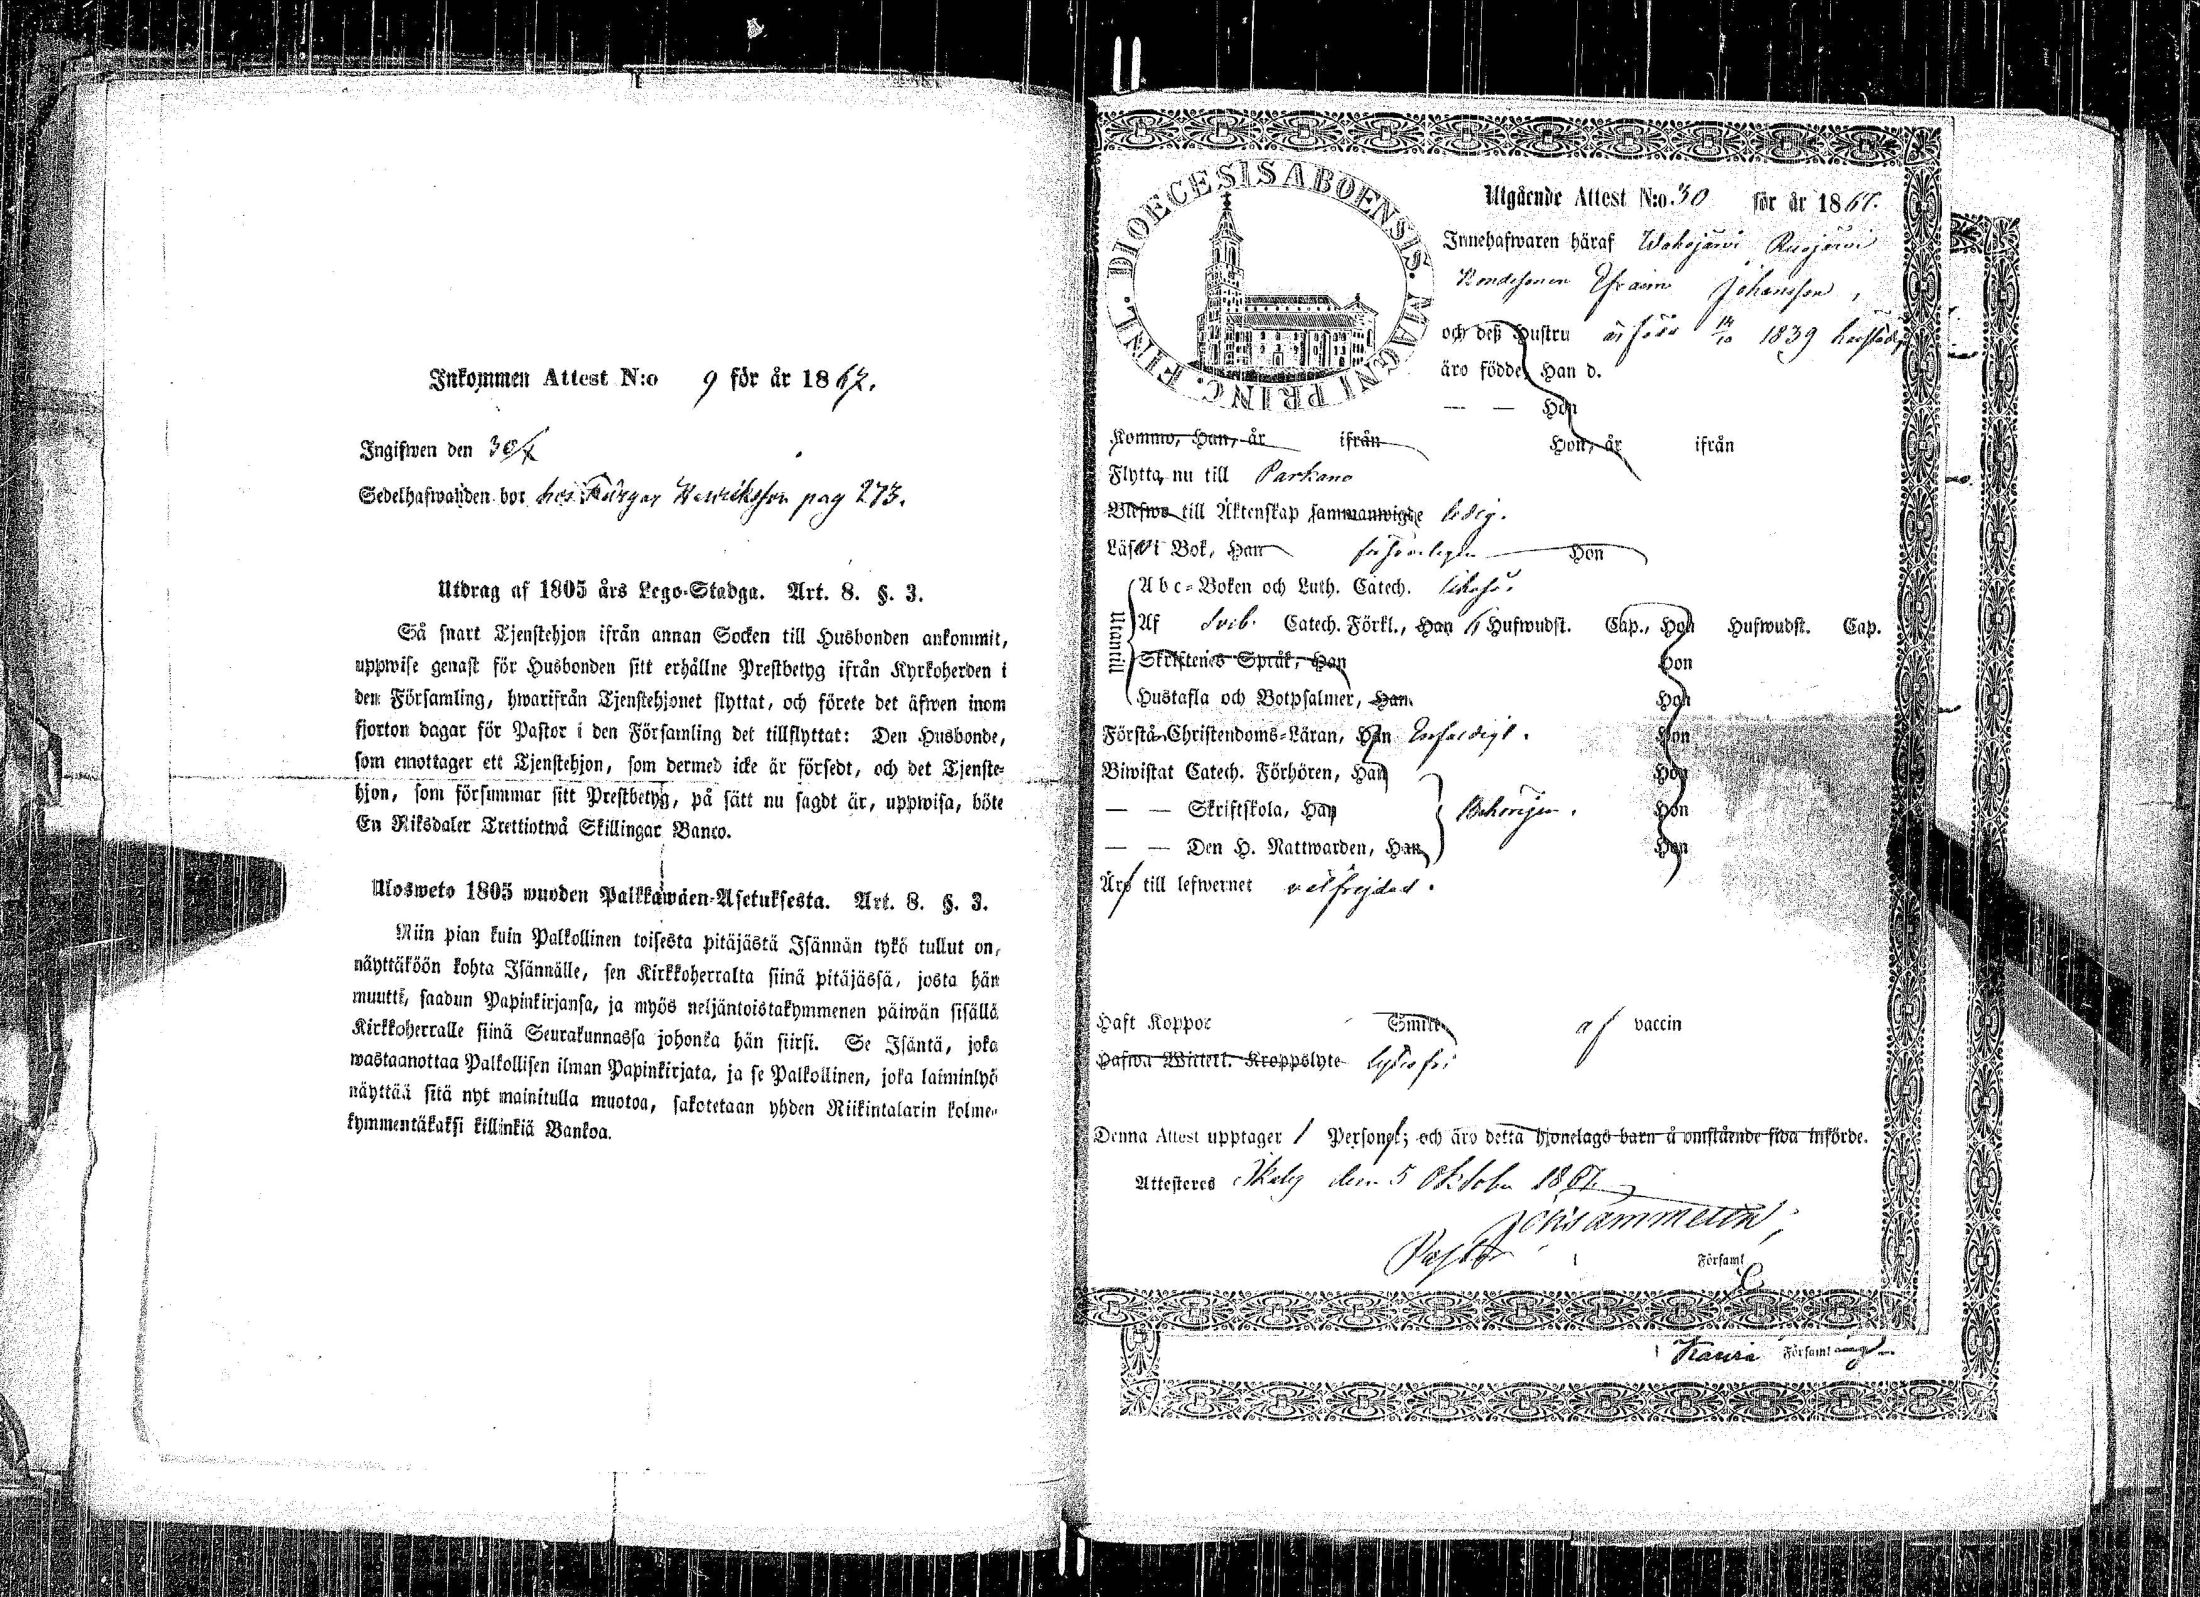 Inkommen Attest N:o 9 för år 1867.
Ingifwen den 30/
Sedelhafwanden bor hos Henriksson pag 273.
Utdrag af 1805 års Lego-Stadga. Art. 8. §. 3.
Så snart Tjenstehjon ifrån annan Socken till Husbonden ankommit,
uppwise genast för Husbonden sitt erhållne Prestbetyg ifrån Kyrkoherden i
den Församling, hwarifrån Tjenstehjonet flyttat, och förete det äfwen inom
fjorton dagar för Pastor i den Församling det tillflyttat: Den Husbonde,
som emottager ett Tjenstehjon, som dermed icke är försedt, och det Tjenste-
hjon, som försummar sitt Prestbetyg, på sätt nu sagdt är, uppwisa, böte
En Riksdaler Trettiotwå Skillingar Banco.
Ulosweto 1805 wuoden Palkkawäen-Asetuksesta. Art. 8. §. 3.
Niin pian kuin Palkollinen toisesta pitäjästä Isännän tykö tullut on,
näyttäköön kohta Isännälle, sen Kirkkoherralta siinä pitäjässä, josta hän
muutti, saadun Papinkirjansa, ja myös neljäntoistakymmenen päiwän sisällä
Kirkkoherralle siinä Seurakunnassa johonka hän siirsi. Se Isäntä, joka
wastaanottaa Palkollisen ilman Papinkirjata, ja se Palkollinen, joka laiminlyö
näyttää sitä nyt mainitulla muotoa, sakotetaan yhden Riikintalarin kolme-
kymmentäkaksi killinkiä Bankoa.
DIOECESIS ABOENSIS. MAGNI PRINC. FINL.
Utgående Attest N:o 30 för år 1867.
Innehafwaren häraf
Bondesonen Efraim Johansson,
och deß Hustru är född 14/10 1839 härstädes
äro födde, Han d.
— — Hon
Kommo, Han, år ifrån Hon, år ifrån
Flytta nu till Parkano
Blefwo till Äktenskap sammanwigde ledig.
Läsa i Bok, Han försvarligen Hon
Utantill
Abc-Boken och Luth. Catech.
Af Sveb. Catech. Förkl., Han 6 Hufwudst. Cap., Hon Hufwudst. Cap.
Skriftenes Språk, Han Hon
Hustafla och Botpsalmer, Han Hon
Förstå Christendoms-Läran, Han Enfaldigt. Hon
Biwistat Catech. Förhören, Han Hon
— — Skriftskola, Han Behörigen. Hon
— — Den H. Nattwarden, Han Hon
Äro till lefwernet välfrejdad.
Haft Koppor Smitt af vaccin
Hafwa Witterl. Kroppslyte lytesfri
Denna Attest upptager 1 Personer; och äro detta hjonelags barn å omstående sida införde.
Attesteres den 5 Oktober 1867
Pastor i Församl
i Församling